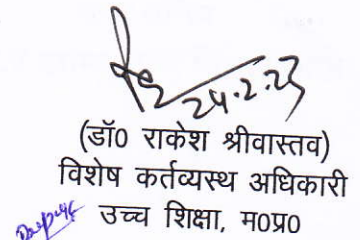 24.2.23
(डॉ0 राकेश श्रीवास्तव)
विशेष कर्तव्यस्थ अधिकारी
उच्च शिक्षा, म0प्र0